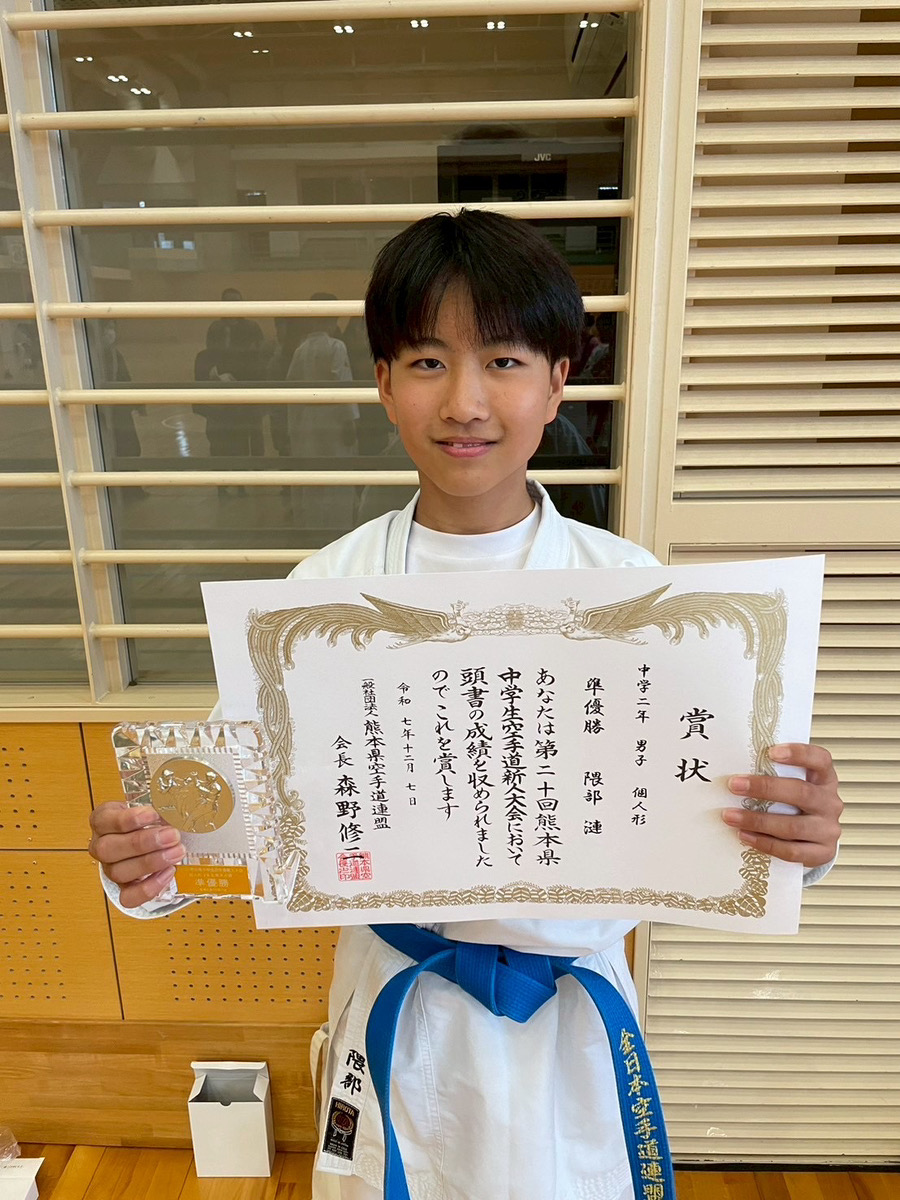 JVC
賞状
中学二年 男子 個人形
準優勝 隈部 漣
あなたは第二十回熊本県
中学生空手道新人大会において
頭書の成績を収められました
のでこれを賞します
令和 七年十二月 七日
一般社団法人 熊本県空手道連盟
会長 森野修二
準優勝
隈部
HIROTA
全日本空手道連盟